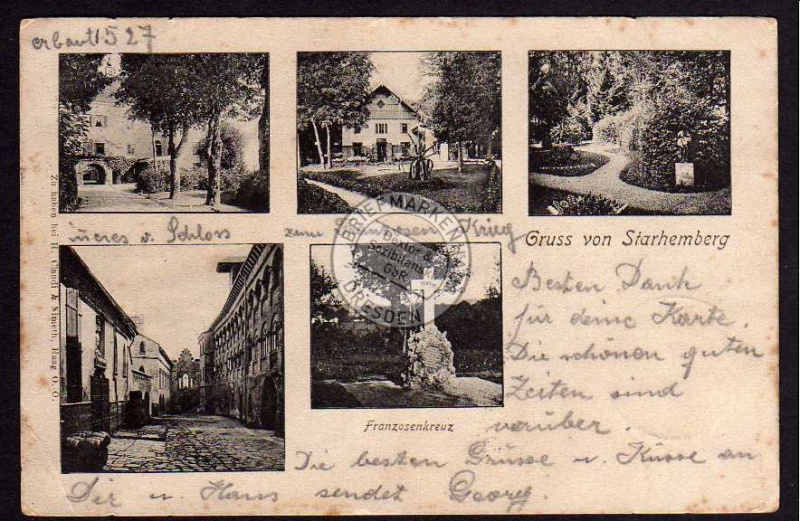 erbaut 1527
inneres v. Schloss
zum Franzosen Krieg
BRIEFMARKEN
Dexler &
GbR
DRESDEN
Gruss von Starhemberg
Franzosenkreuz
Besten Dank
für deine Karte.
Die schönen guten
Zeiten sind
vorüber.
Die besten Grüsse u. Küsse an
Dir u. Hans sendet Georg.
Zu haben bei H. & Haag O.-Ö.